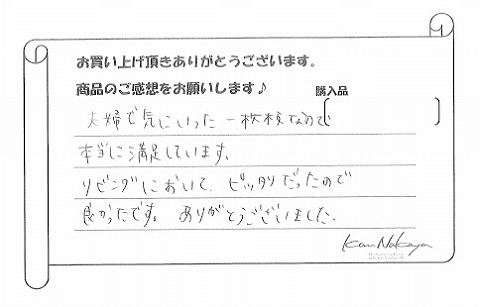 お買い上げ頂きありがとうございます。
商品のご感想をお願いします♪
購入品
夫婦で気にいった一枚板なので
本当に満足しています。
リビングにおいて、ピッタリだったので
良かったです。ありがとうございました。
Kan Nakaya